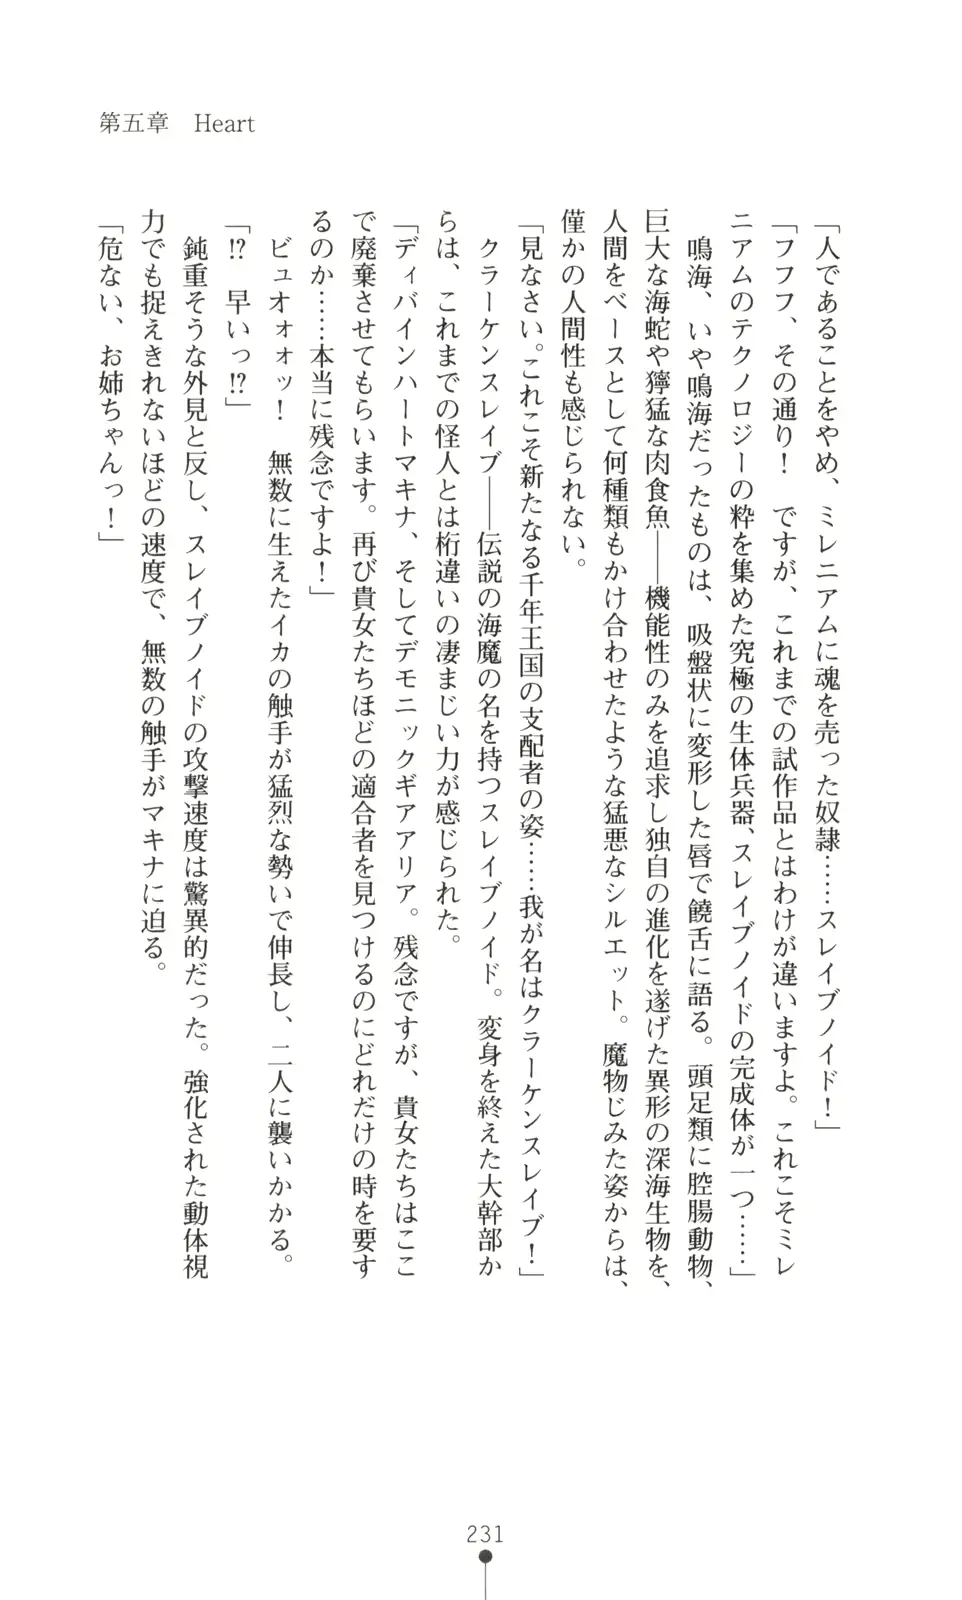 第五章　Heart
「人であることをやめ、ミレニアムに魂を売った奴隷……スレイブノイド！」
「フフフ、その通り！　ですが、これまでの試作品とはわけが違いますよ。これこそミレ
ニアムのテクノロジーの粋を集めた究極の生体兵器、スレイブノイドの完成体が一つ……」
　鳴海、いや鳴海だったものは、吸盤状に変形した唇で饒舌に語る。頭足類に腔腸動物、
巨大な海蛇や獰猛な肉食魚――機能性のみを追求し独自の進化を遂げた異形の深海生物を、
人間をベースとして何種類もかけ合わせたような猛悪なシルエット。魔物じみた姿からは、
僅かの人間性も感じられない。
「見なさい。これこそ新たなる千年王国の支配者の姿……我が名はクラーケンスレイブ！」
　クラーケンスレイブ――伝説の海魔の名を持つスレイブノイド。変身を終えた大幹部か
らは、これまでの怪人とは桁違いの凄まじい力が感じられた。
「ディバインハートマキナ、そしてデモニックギアアリア。残念ですが、貴女たちはここ
で廃棄させてもらいます。再び貴女たちほどの適合者を見つけるのにどれだけの時を要す
るのか……本当に残念ですよ！」
　ビュオォォッ！　無数に生えたイカの触手が猛烈な勢いで伸長し、二人に襲いかかる。
「!?　早いっ!?」
　鈍重そうな外見と反し、スレイブノイドの攻撃速度は驚異的だった。強化された動体視
力でも捉えきれないほどの速度で、無数の触手がマキナに迫る。
「危ない、お姉ちゃんっ！」
231